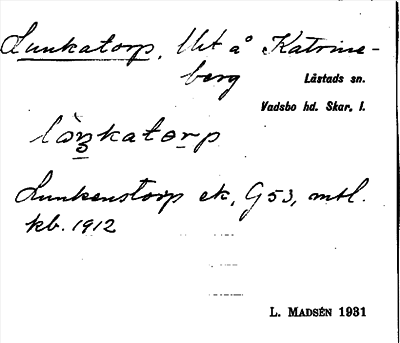 Lunkatorp, Utt å Katrine-
berg
Låstads sn.
Vadsbo hd. Skar. l.
lòŋkatorp
Lunkenstorp ek, G 53, mtl.
kb. 1912
L. MADSÉN 1931